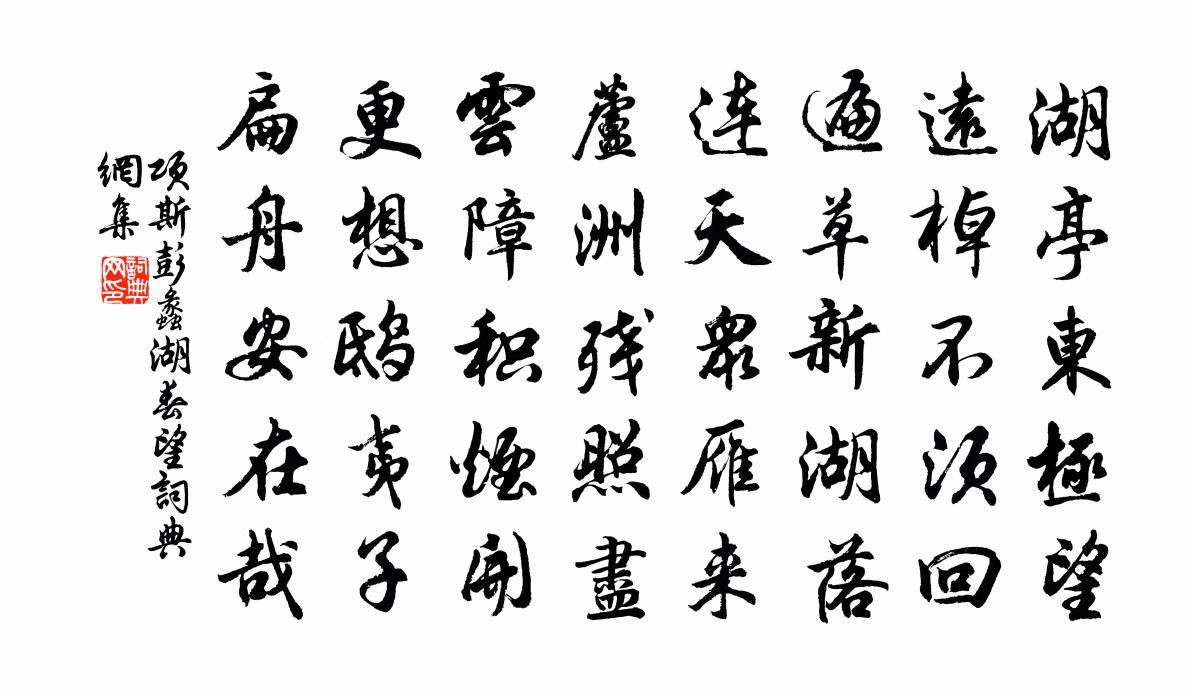 湖亭東極望
遠棹不須回
遍草新湖落
連天眾雁来
蘆洲残照盡
雲障积煙開
更想鸱夷子
扁舟安在哉
項斯彭蠡湖春望詞典
網集
詞典網印